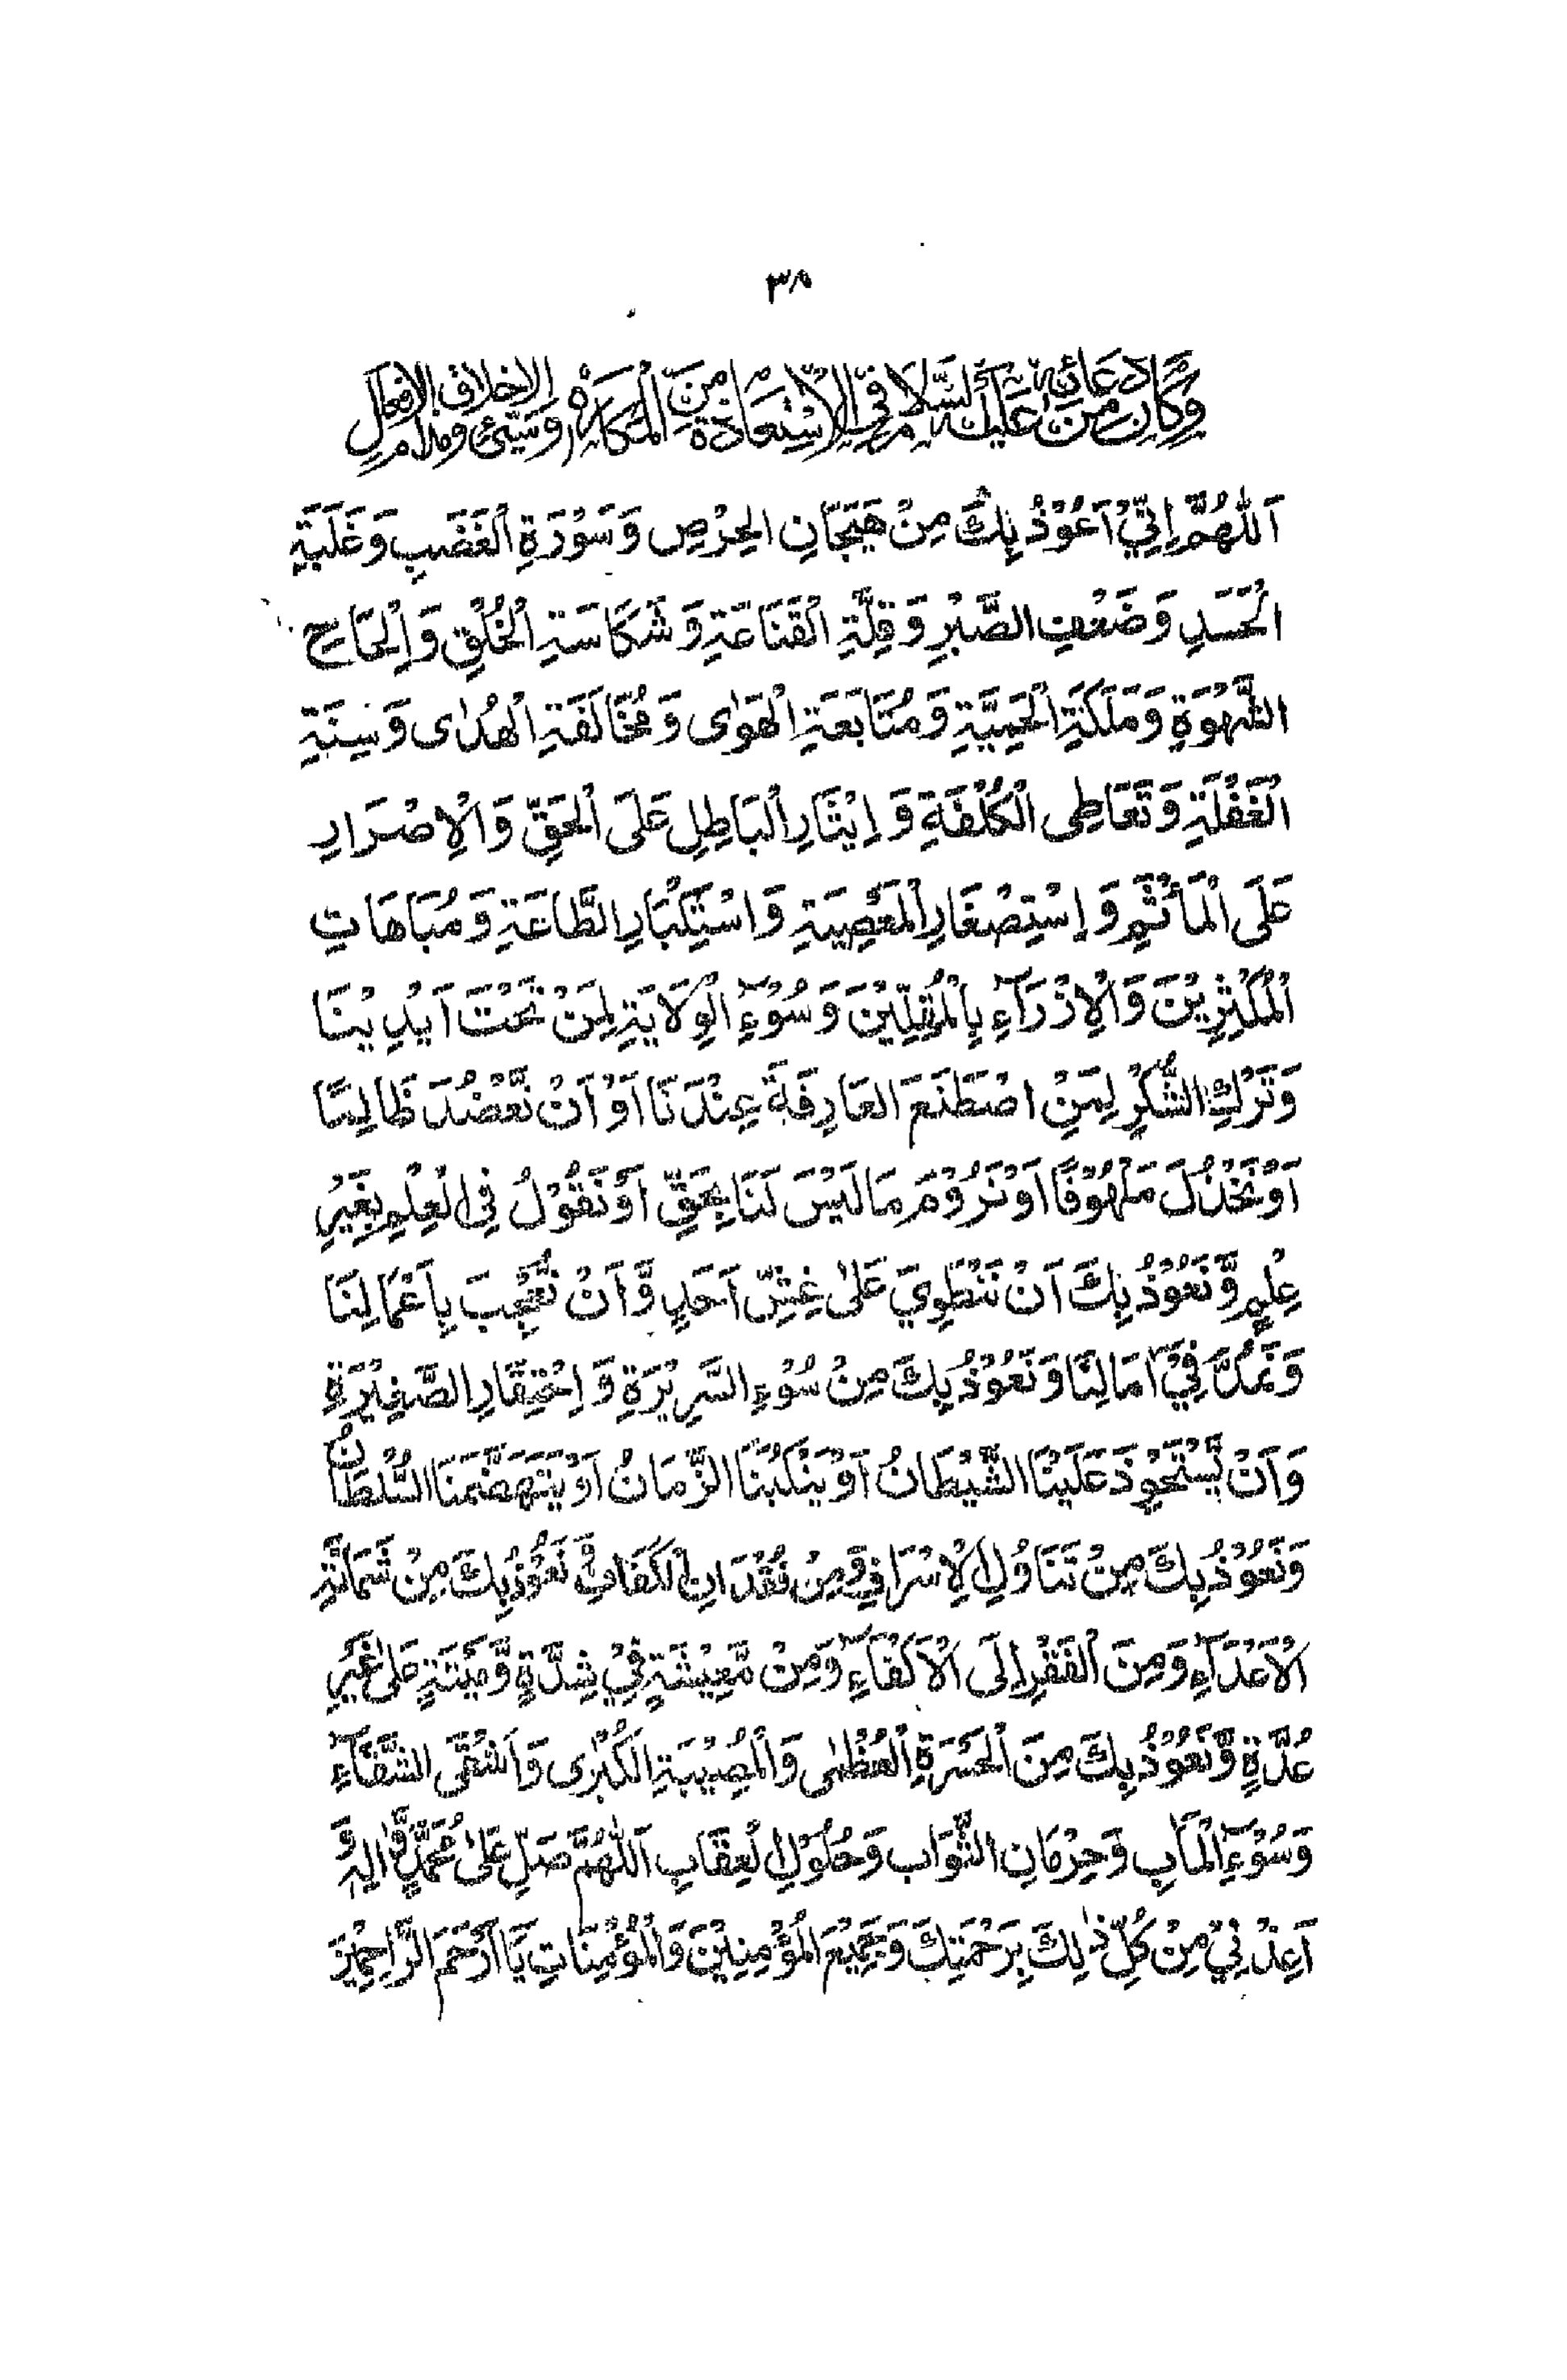 ٣٨
وَكَانَ مِنْ دُعَائِهِ عَلَيْهِ السَّلَامُ فِي الْاِسْتِعَاذَةِ مِنَ الْمَكَارِهِ وَسَيِّئِ الْاَخْلَاقِ وَمَذَامِّ الْاَفْعَالِ
اَللّٰهُمَّ اِنِّيْ اَعُوْذُ بِكَ مِنْ هَيَجَانِ الْحِرْصِ وَسَوْرَةِ الْغَضَبِ وَغَلَبَةِ
الْحَسَدِ وَضَعْفِ الصَّبْرِ وَقِلَّةِ الْقَنَاعَةِ وَشَكَاسَةِ الْخُلُقِ وَاِلْحَاحِ
الشَّهْوَةِ وَمَلَكَةِ الْحَمِيَّةِ وَمُتَابَعَةِ الْهَوٰى وَمُخَالَفَةِ الْهُدٰى وَسِنَةِ
الْغَفْلَةِ وَتَعَاطِى الْكُلْفَةِ وَاِيْثَارِ الْبَاطِلِ عَلَى الْحَقِّ وَالْاِصْرَارِ
عَلَى الْمَأْثَمِ وَاِسْتِصْغَارِ الْمَعْصِيَةِ وَاسْتِكْبَارِ الطَّاعَةِ وَمُبَاهَاتِ
الْمُكْثِرِيْنَ وَالْاِزْرَآءِ بِالْمُقِلِّيْنَ وَسُوْءِ الْوِلَايَةِ لِمَنْ تَحْتَ اَيْدِيْنَا
وَتَرْكِ الشُّكْرِ لِمَنِ اصْطَنَعَ الْعَارِفَةَ عِنْدَنَا اَوْ اَنْ نَعْضُدَ ظَالِمًا
اَوْ نَخْذُلَ مَلْهُوْفًا اَوْ نَرُوْمَ مَا لَيْسَ لَنَا بِحَقٍّ اَوْ نَقُوْلُ فِي الْعِلْمِ بِغَيْرِ
عِلْمٍ وَّنَعُوْذُ بِكَ اَنْ نَنْطَوِيَ عَلٰى غِشِّ اَحَدٍ وَّاَنْ نُعْجِبَ بِاَعْمَالِنَا
وَنَمُدَّ فِيْ اٰمَالِنَا وَنَعُوْذُ بِكَ مِنْ سُوْءِ السَّرِيْرَةِ وَاِحْتِقَارِ الصَّغِيْرَةِ
وَاَنْ يَّسْتَحْوِذَ عَلَيْنَا الشَّيْطَانُ اَوْ يَنْكُبَنَا الزَّمَانُ اَوْ يَتَهَضَّمَنَا السُّلْطَانُ
وَنَعُوْذُ بِكَ مِنْ تَنَاوُلِ الْاِسْرَافِ وَمِنْ فُقْدَانِ الْكَفَافِ نَعُوْذُ بِكَ مِنْ شَمَاتَةِ
الْاَعْدَآءِ وَمِنَ الْفَقْرِ اِلَى الْاَكْفَآءِ وَمِنْ مَّعِيْشَةٍ فِيْ شِدَّةٍ وَّمِيْتَةٍ عَلٰى غَيْرِ
عُدَّةٍ وَّنَعُوْذُ بِكَ مِنَ الْحَسْرَةِ الْعُظْمٰى وَالْمُصِيْبَةِ الْكُبْرٰى وَاَشْقَى الشَّقَآءِ
وَسُوْءِ الْمَاٰبِ وَحِرْمَانِ الثَّوَابِ وَحُلُوْلِ الْعِقَابِ اَللّٰهُمَّ صَلِّ عَلٰى مُحَمَّدٍ وَّاٰلِهٖ وَ
اَعِذْنِيْ مِنْ كُلِّ ذٰلِكَ بِرَحْمَتِكَ وَجَمِيْعَ الْمُؤْمِنِيْنَ وَالْمُؤْمِنَاتِ يَا اَرْحَمَ الرَّاحِمِيْنَ